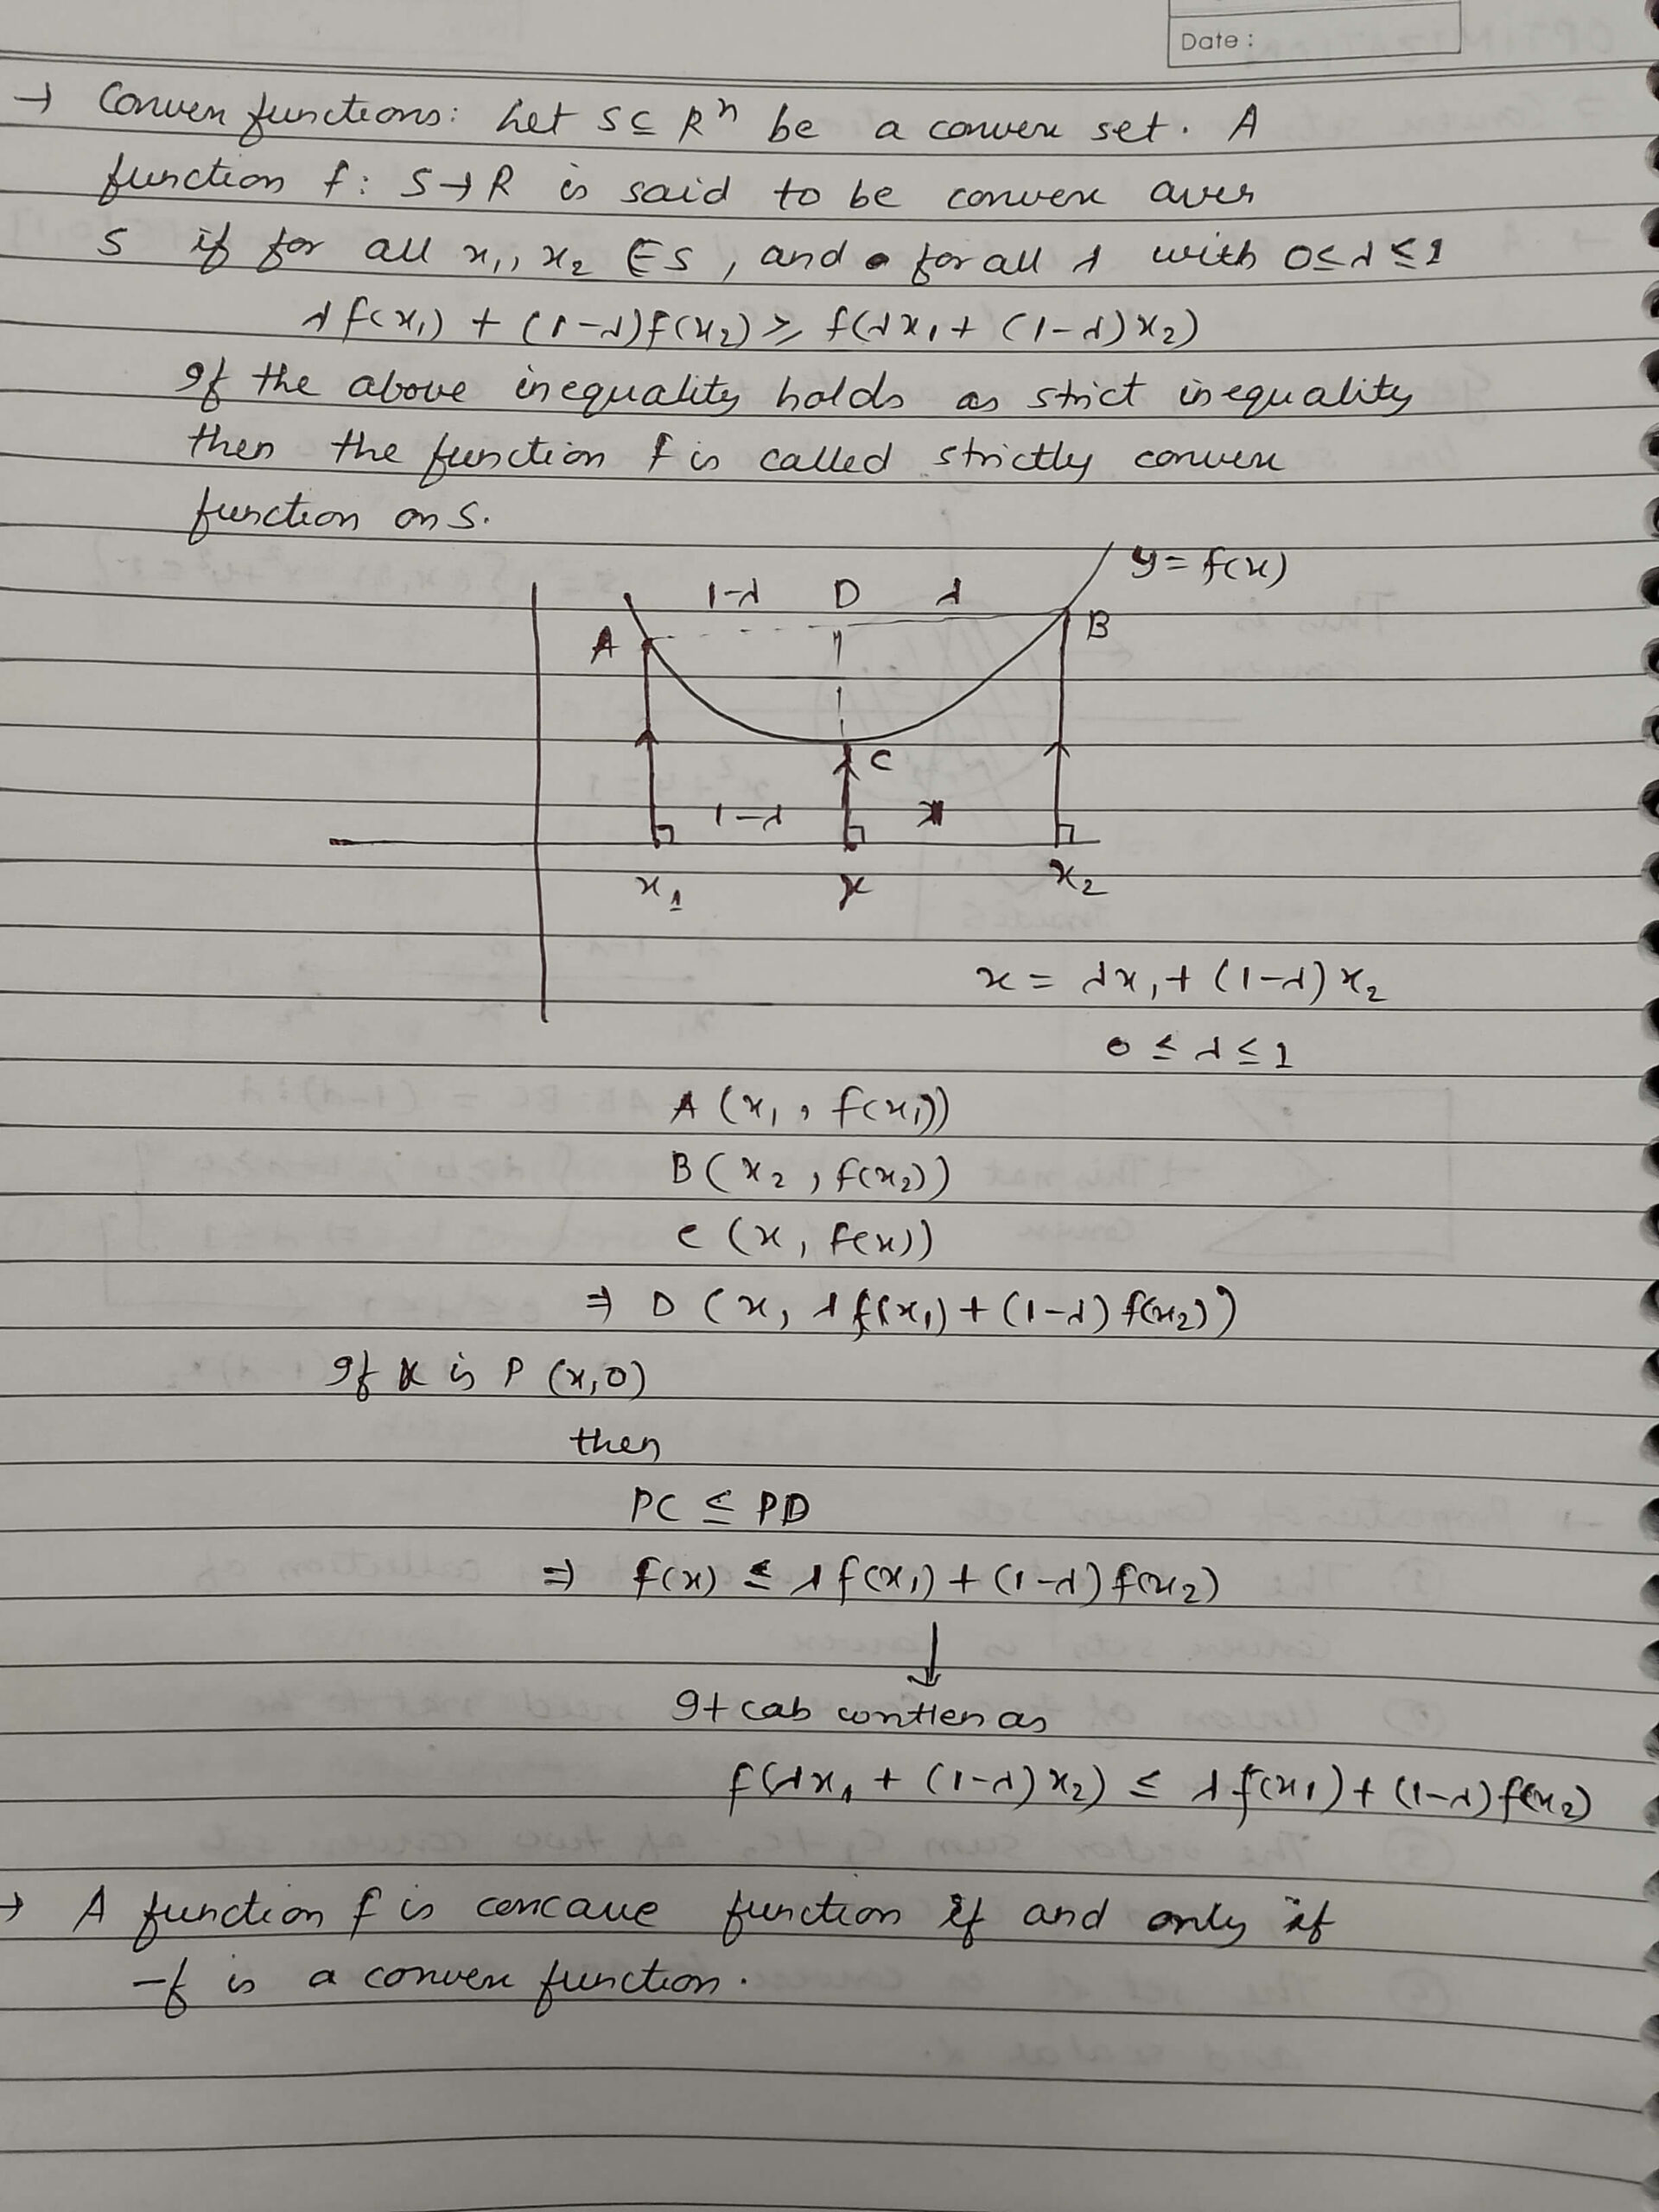 Date :
→ Convex functions: Let S ⊆ Rⁿ be a convex set. A
function f: S → R is said to be convex over
S if for all x₁, x₂ ∈ S, and for all λ with 0 ≤ λ ≤ 1
λf(x₁) + (1-λ)f(x₂) ≥ f(λx₁ + (1-λ)x₂)
If the above inequality holds as strict inequality
then the function f is called strictly convex
function on S.
y = f(x)
1-λ D λ
A B
C
1-λ
x₁ x x₂
x = λx₁ + (1-λ)x₂
0 ≤ λ ≤ 1
A (x₁, f(x₁))
B (x₂, f(x₂))
C (x, f(x))
⇒ D (x, λf(x₁) + (1-λ) f(x₂))
If x is P (x,0)
then
PC ≤ PD
⇒ f(x) ≤ λf(x₁) + (1-λ) f(x₂)
↓
It cab written as
f(λx₁ + (1-λ)x₂) ≤ λf(x₁) + (1-λ)f(x₂)
→ A function f is concave function if and only if
-f is a convex function.